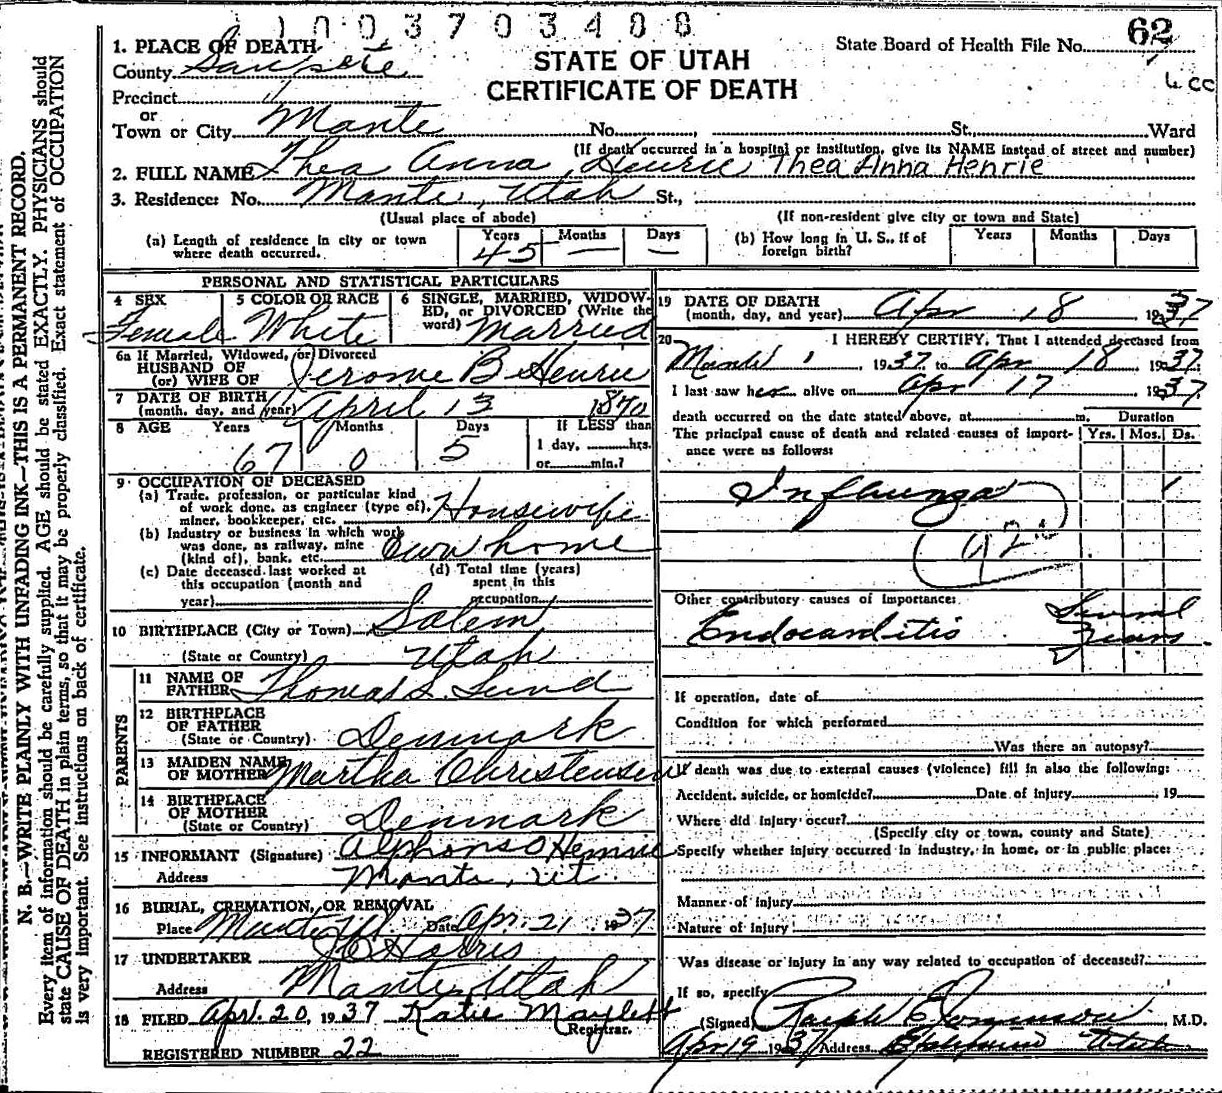 1003703488
1. PLACE OF DEATH
County Sanpete
Precinct "
or
Town or City Mante No. , St., Ward
STATE OF UTAH
CERTIFICATE OF DEATH
State Board of Health File No. 62
(If death occurred in a hospital or institution, give its NAME instead of street and number)
2. FULL NAME Thea Anna Henrie Thea Anna Henrie
3. Residence: No. Mante, Utah St.,
(Usual place of abode) (If non-resident give city or town and State)
(a) Length of residence in city or town where death occurred. Years 45 Months — Days —
(b) How long in U. S., if of foreign birth? Years Months Days
PERSONAL AND STATISTICAL PARTICULARS
4 SEX Female
5 COLOR OR RACE White
6 SINGLE, MARRIED, WIDOW-
ED, or DIVORCED (Write the
word) Married
6a If Married, Widowed, (or) Divorced
HUSBAND OF
(or) WIFE OF Jerome B Henrie
7 DATE OF BIRTH
(month, day, and year) April 13 1870
8 AGE Years 67 Months 0 Days 5 If LESS than
1 day, hrs.
or min.?
9 OCCUPATION OF DECEASED
(a) Trade, profession, or particular kind
of work done, as engineer (type of),
miner, bookkeeper, etc. Housewife
(b) Industry or business in which work
was done, as railway, mine
(kind of), bank, etc. Own home
(c) Date deceased last worked at
this occupation (month and
year)
(d) Total time (years)
spent in this
occupation
10 BIRTHPLACE (City or Town) Salem
(State or Country) Utah
PARENTS
11 NAME OF
FATHER Thomas L. Lund
12 BIRTHPLACE
OF FATHER
(State or Country) Denmark
13 MAIDEN NAME
OF MOTHER Martha Christensen
14 BIRTHPLACE
OF MOTHER
(State or Country) Denmark
15 INFORMANT (Signature) Alphonso Henrie
Address Manta, Ut
16 BURIAL, CREMATION, OR REMOVAL
Place Mante Ut Date Apr. 21 1937
17 UNDERTAKER Harris
Address Mante Utah
18 FILED Apr. 20, 1937 Katie Maylett
Registrar.
REGISTERED NUMBER 22
19 DATE OF DEATH
(month, day, and year) Apr 18 1937
20 I HEREBY CERTIFY, That I attended deceased from
, 1937, to Apr 18, 1937.
I last saw her alive on Apr 17 1937
death occurred on the date stated above, at m. Duration
The principal cause of death and related causes of import-
ance were as follows: Yrs. Mos. Ds.
Influenza
Other contributory causes of importance:
Endocarditis Several
Years
If operation, date of
Condition for which performed
Was there an autopsy?
If death was due to external causes (violence) fill in also the following:
Accident, suicide, or homicide? Date of injury , 19
Where did injury occur?
(Specify city or town, county and State)
Specify whether injury occurred in industry, in home, or in public place:
Manner of injury
Nature of injury
Was disease or injury in any way related to occupation of deceased?
If so, specify
(Signed) Ralph E , M.D.
Apr 19 1937 Address Ephraim Utah
N. B.—WRITE PLAINLY WITH UNFADING INK—THIS IS A PERMANENT RECORD.
Every item of information should be carefully supplied. AGE should be stated EXACTLY. PHYSICIANS should
state CAUSE OF DEATH in plain terms, so that it may be properly classified. Exact statement of OCCUPATION
is very important. See instructions on back of certificate.